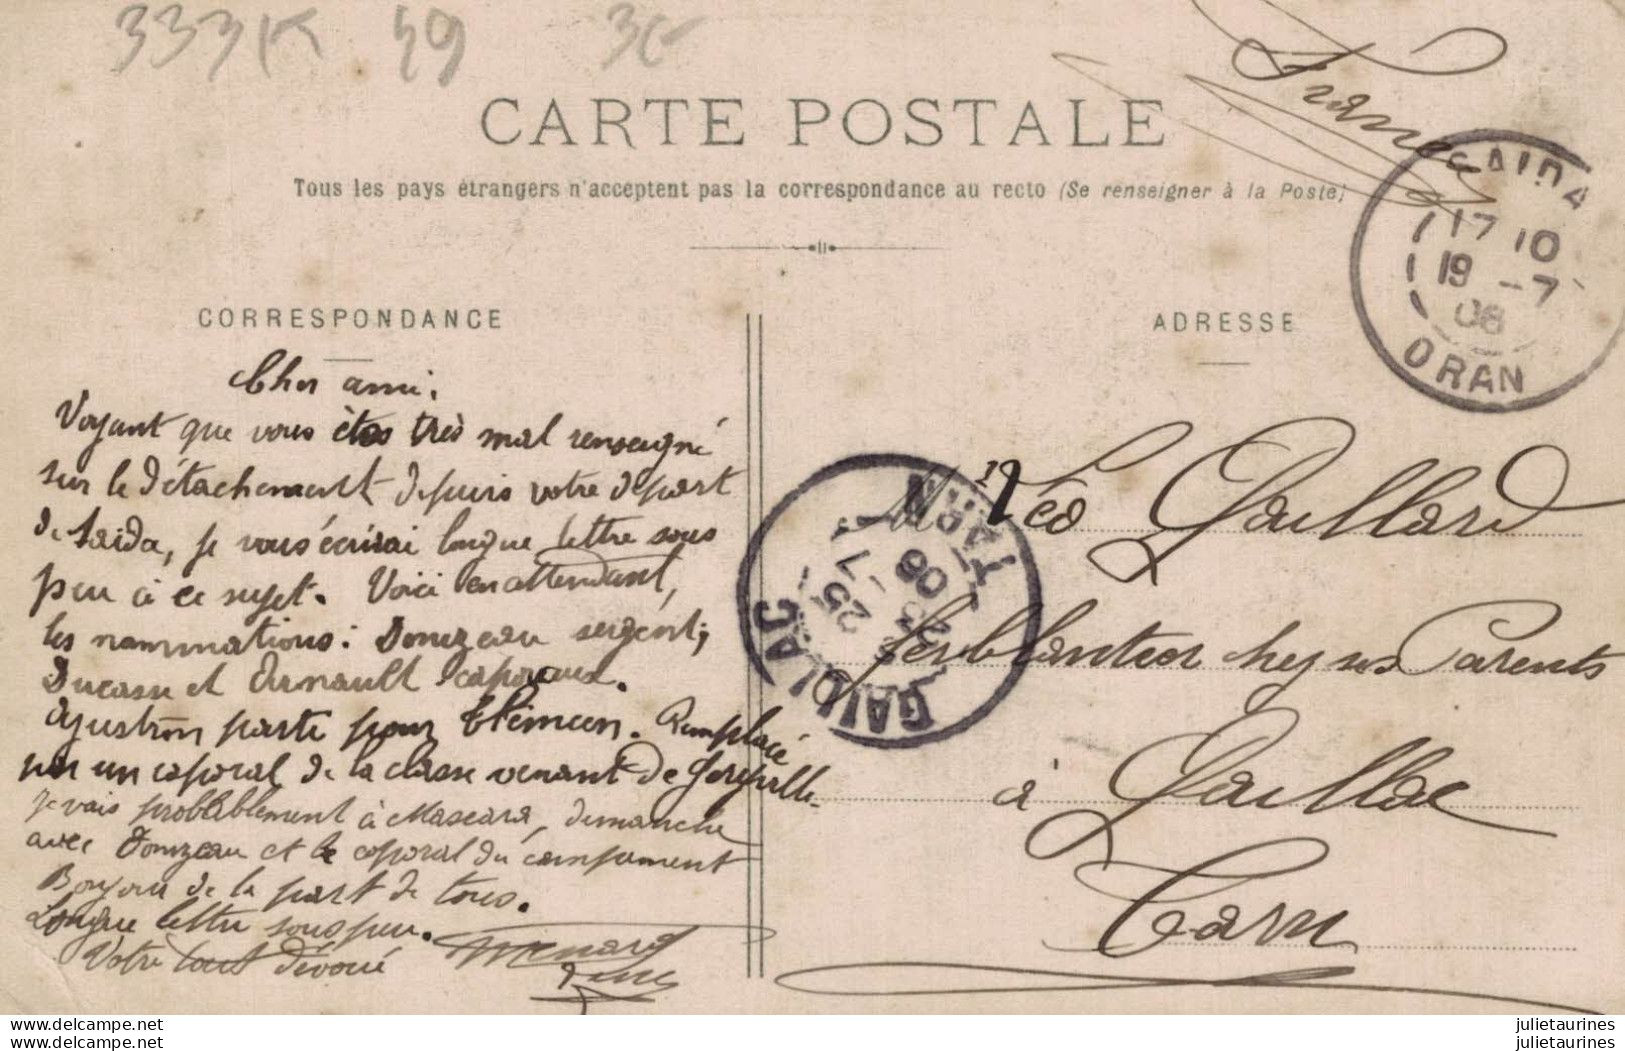 333K 49 3€
France
CARTE POSTALE
Tous les pays étrangers n'acceptent pas la correspondance au recto (Se renseigner à la Poste)
SAIDA
17 10
19 -7
08
ORAN
CORRESPONDANCE
Cher ami.
Voyant que vous êtes très mal renseigné
sur le détachement depuis votre départ
de Saida, je vous écrirai longue lettre sous
peu à ce sujet. Voici en attendant,
les nominations: Donizeau sergent;
Ducasse et Arnault caporaux.
Ajustron parti pour Tlémcen. Remplacé
par un caporal de la classe venant de Géryville.
Je vais probablement à Mascara, dimanche
avec Donizeau et le caporal du campement
Bonjour de la part de tous.
Longue lettre sous peu.
Votre tout dévoué
ADRESSE
Mr Léo Gaillard
ferblantier chez ses Parents
à Gaillac
Tarn
GAILLAC
TARN
25 -7
08
julietaurines.com
julietaurines.com
julietaurines
julietaurines